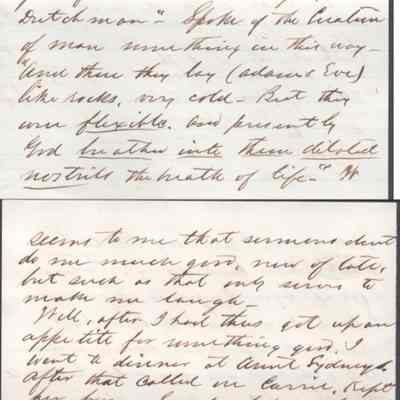 Dutchman". Spoke of the Creation
of man something in this way -
"And there they lay (Adam & Eve)
like rocks, very cold - But they
were flexible. and presently
God breathed into them dilated
nostrils the breath of life." It
seems to me that sermons dont
do me much good, now of late,
but such as that only serves to
make me laugh -
Well, after I had thus got up an
appetite for something good. I
went to dinner at Aunt Sydney's
after that called on Carrie, Kept